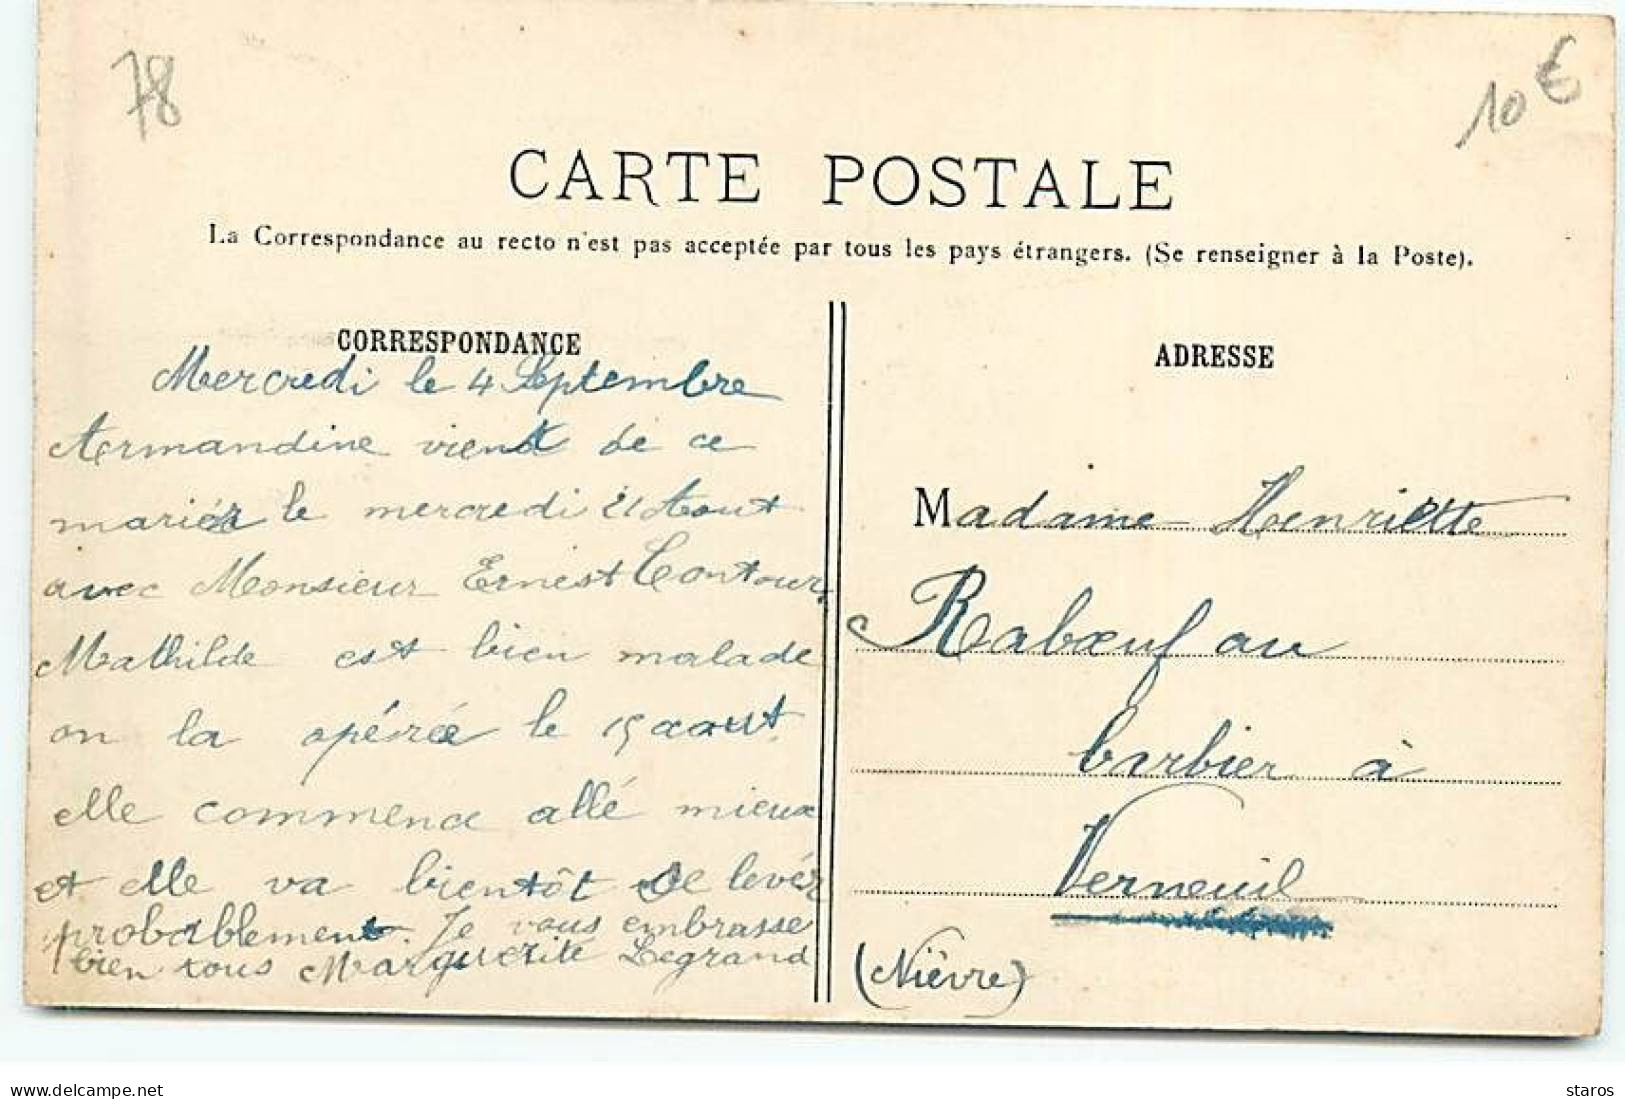 78
10 €
CARTE POSTALE
La Correspondance au recto n'est pas acceptée par tous les pays étrangers. (Se renseigner à la Poste).
CORRESPONDANCE
Mercredi le 4 Septembre
Armandine vient de ce
mariér le mercredi 21 Aout
avec Monsieur Ernest Contour,
Mathilde est bien malade
on la opérée le 15 aout
elle commence allé mieux
et elle va bientôt se levér
probablement. Je vous embrasse
bien tous Marguerite Legrand
ADRESSE
Madame Henriette
Rabœuf au
barbier à
Verneuil
(Nièvre)
delcampe.net
staros